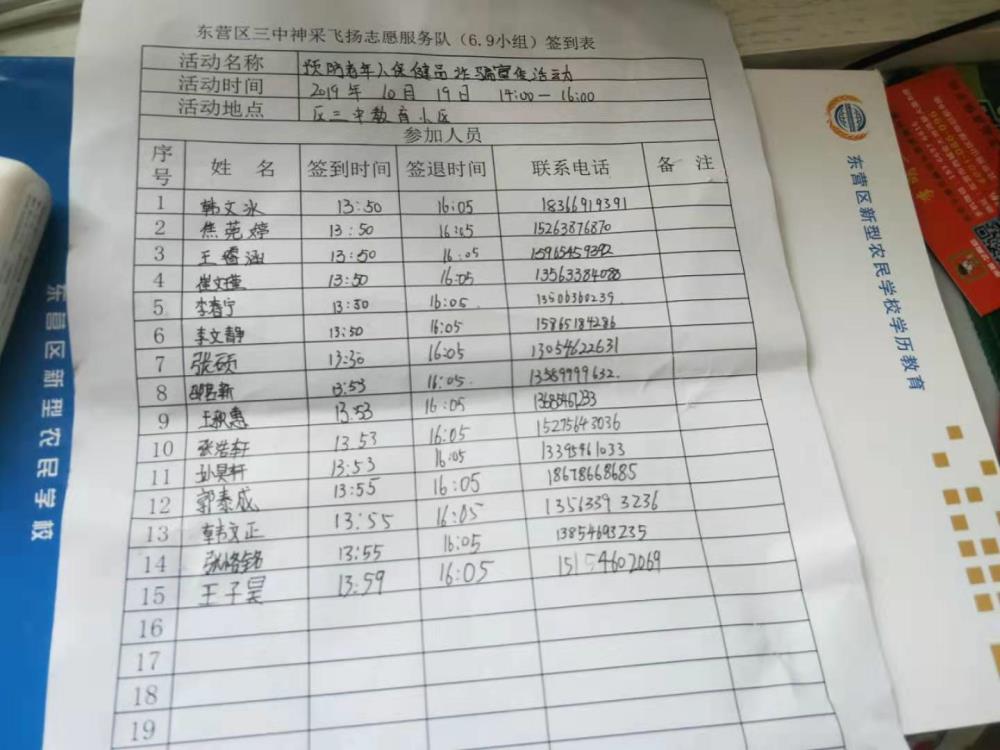 东营区三中神采飞扬志愿服务队（6.9小组）签到表
活动名称 预防老年人保健品诈骗宣传活动
活动时间 2019年 10月 19日 14:00—16:00
活动地点 区三中教育小区
参加人员
序号 姓 名 签到时间 签退时间 联系电话 备 注
1 韩文冰 13:50 16:05 18366919391
2 焦苑婷 13:50 16:05 15263876870
3 王睿涵 13:50 16:05
4 崔文瑾 13:50 16:05 13563384088
5 李春宁 13:50 16:05
6 李文静 13:50 16:05 15865184286
7 张硕 13:50 16:05 13054622631
8 13:53 16:05. 13589999632.
9 王秋惠 13:53 16:05
10 张浩轩 13:53 16:05 15275643036
11 孙昊轩 13:53 16:05 13395461033
12 郭泰成 13:55 16:05 18678668685
13 韩文正 13:55 16:05 13563393236
14 张恪铭 13:55 16:05 13854693235
15 王子昊 13:59 16:05 15154602069
16
17
18
19
东营区新型农民学校
东营区新型农民学校学历教育